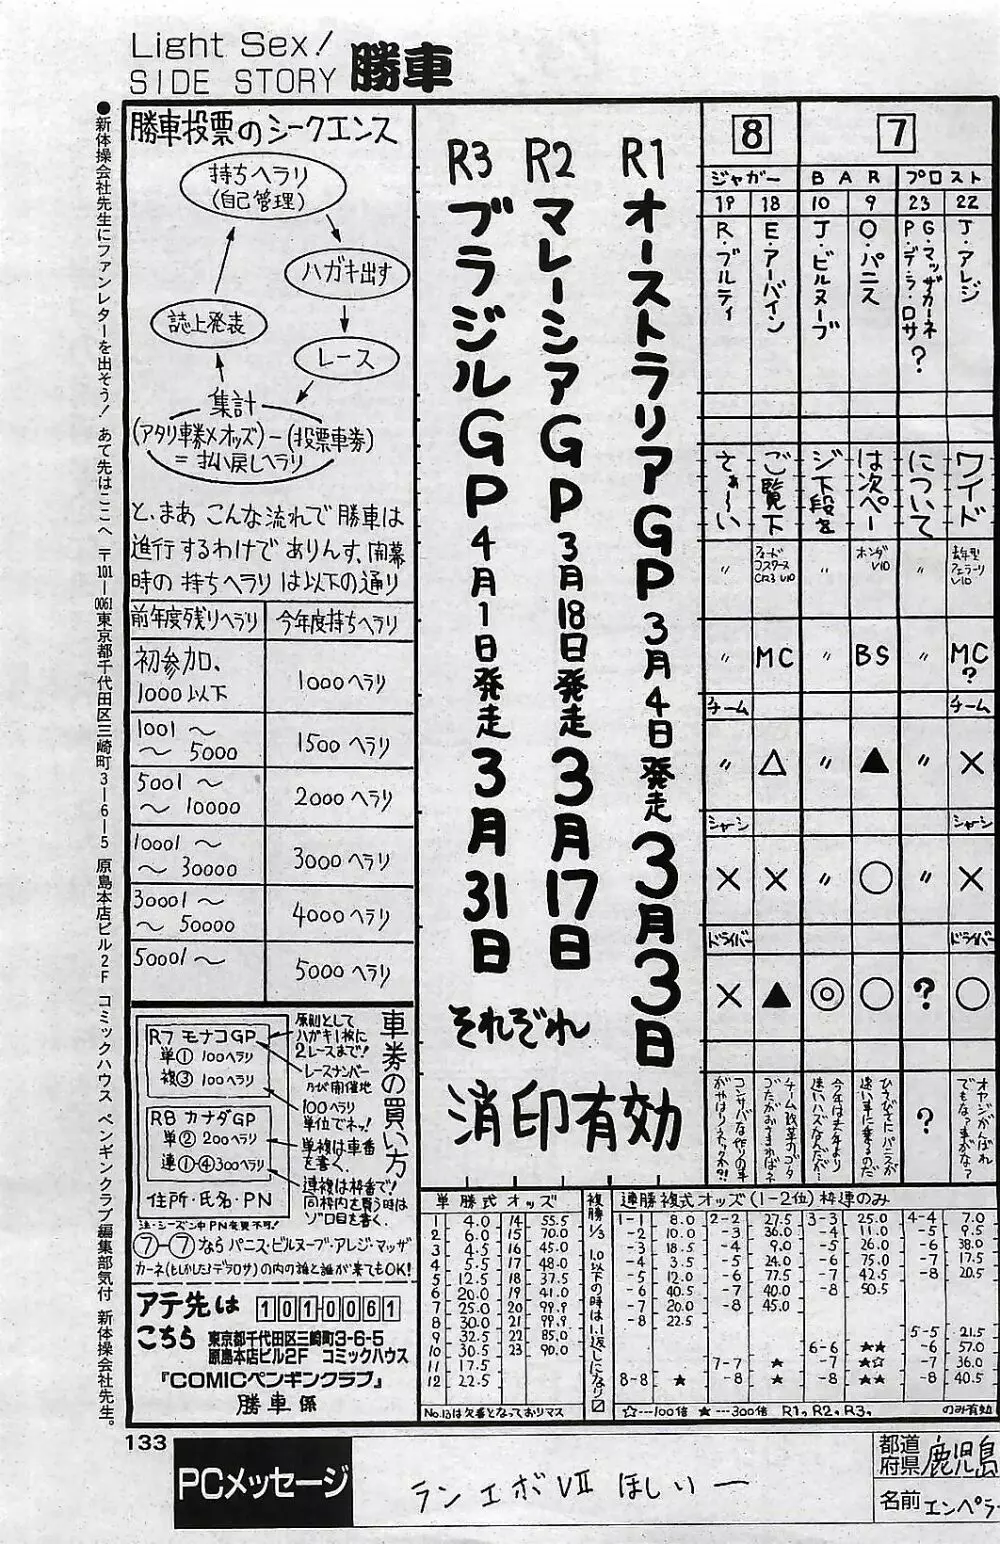 Light Sex!
SIDE STORY 勝車
●新体操会社先生にファンレターを出そう! あて先はここへ 〒101-0061東京都千代田区三崎町3-6-5 原島本店ビル2F コミックハウス ペンギンクラブ編集部気付 新体操会社先生。
勝車投票のシークエンス
持ちヘラリ
(自己管理)
ハガキ出す
レース
集計
(アタリ車券×オッズ)-(投票車券)
=払い戻しヘラリ
誌上発表
と、まあ こんな流れで 勝車は
進行するわけで ありんす、開幕
時の 持ちヘラリ は以下の通り
前年度残りヘラリ 今年度持ちヘラリ
初参加、
1000以下 1000ヘラリ
1001 〜
〜 5000 1500ヘラリ
5001 〜
〜 10000 2000ヘラリ
10001 〜
〜 30000 3000ヘラリ
30001 〜
〜 50000 4000ヘラリ
50001 〜 5000ヘラリ
車券の買い方
R7 モナコGP
単① 100ヘラリ
複③ 100ヘラリ
R8 カナダGP
単② 200ヘラリ
連①-④300ヘラリ
住所・氏名・PN
原則として
ハガキ1枚に
2レースまで!
レースナンバー
及び開催地
100ヘラリ
単位でネッ!
単複は車番
を書く、
連複は枠番で!
同枠内を買う時は
ゾロ目を書く、
注・シーズン中PN変更不可!
⑦-⑦なら パニス・ビルヌーブ・アレジ・マッザ
カーネ(もしかしたらデラロサ)の内の誰と誰が来てもOK!
アテ先は 101-0061
こちら 東京都千代田区三崎町3-6-5
原島本店ビル2F コミックハウス
『COMICペンギンクラブ』
勝車係
R1 オーストラリアGP 3月4日発走 3月3日
R2 マレーシアGP 3月18日発走 3月17日
R3 ブラジルGP 4月1日発走 3月31日
それぞれ
消印有効
8 7
ジャガー BAR プロスト
19 18 10 9 23 22
J・アレジ
G・マッザカーネ
P・デ・ラ・ロサ?
O・パニス
J・ビルヌーブ
E・アーバイン
R・ブルティ
ワイド
について
は次ペー
ジ下段を
ご覧下
さぁ〜い
去年型
フェラーリ
V10
〃
ホンダ
V10
〃
フォード
コスワース
CR3 V10
〃
〃 MC 〃 BS 〃 MC?
チーム チーム
〃 △ 〃 ▲ 〃 ×
シャーシ シャーシ
× × 〃 ○ 〃 ×
ドライバー ドライバー
× ▲ ◎ ○ ? ○
オヤジがんばれ
でもな?車がな?
?
ひさびさにパニスが
速い車に乗るのだ
今年は去年より
速いハズなんだが…
チーム改革のゴタ
ゴタがおさまればネ
コンサバな作りの車
がやはりネックか?!
単勝式オッズ
1 4.0 14 55.5
2 6.0 15 70.0
3 4.5 16 45.0
4 5.5 17 48.0
5 12.5 18 37.5
6 20.0 19 41.0
7 25.0 20 99.9
8 30.0 21 99.9
9 32.5 22 85.0
10 30.5 23 90.0
11 17.5
12 22.5
No.13は欠番となっておりマス
複勝 1/3 1.0以下の時は1.1返しになり〼
連勝複式オッズ(1-2位)枠連のみ
1-1 8.0 2-2 27.5 3-3 25.0 4-4 7.0
-2 10.0 -3 36.0 -4 11.0 -5 9.5
-3 18.5 -4 9.0 -5 26.0 -6 38.0
-4 3.5 -5 24.0 -6 75.0 -7 17.5
-5 12.0 -6 77.5 -7 42.5 -8 20.5
-6 40.5 -7 40.0 -8 50.5
-7 20.0 -8 45.0
-8 22.5
5-5 21.5
6-6 ★★ -6 57.0
7-7 ★ -7 ★☆ -7 36.0
8-8 ★ -8 ★ -8 ★★ -8 40.5
☆---100倍 ★---300倍 R1,R2,R3, のみ有効
133
PCメッセージ
ランエボVII ほしいー
都道府県 鹿児島
名前 エンペラー